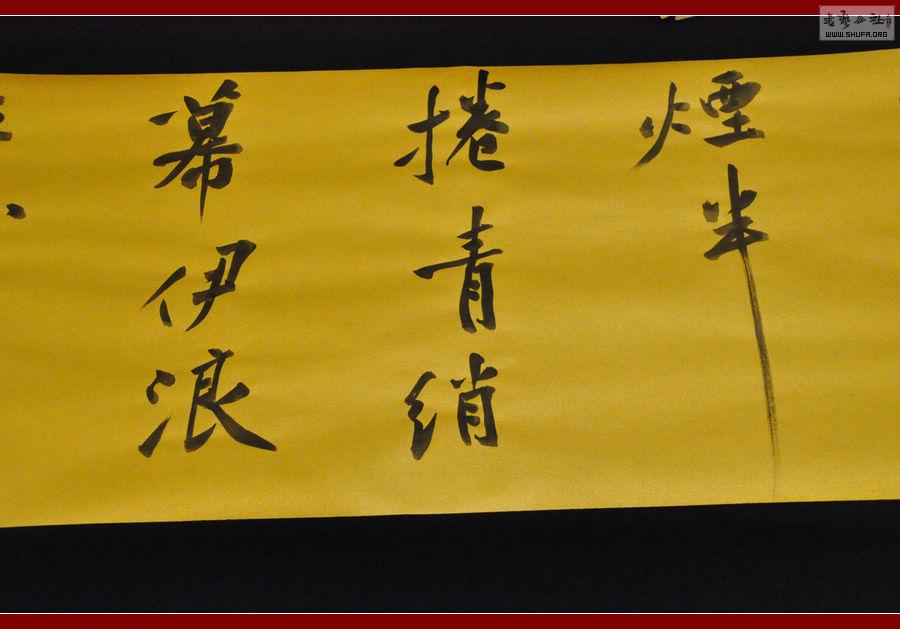 煙半
捲青綃
幕伊浪
書藝公社
WWW.SHUFA.ORG